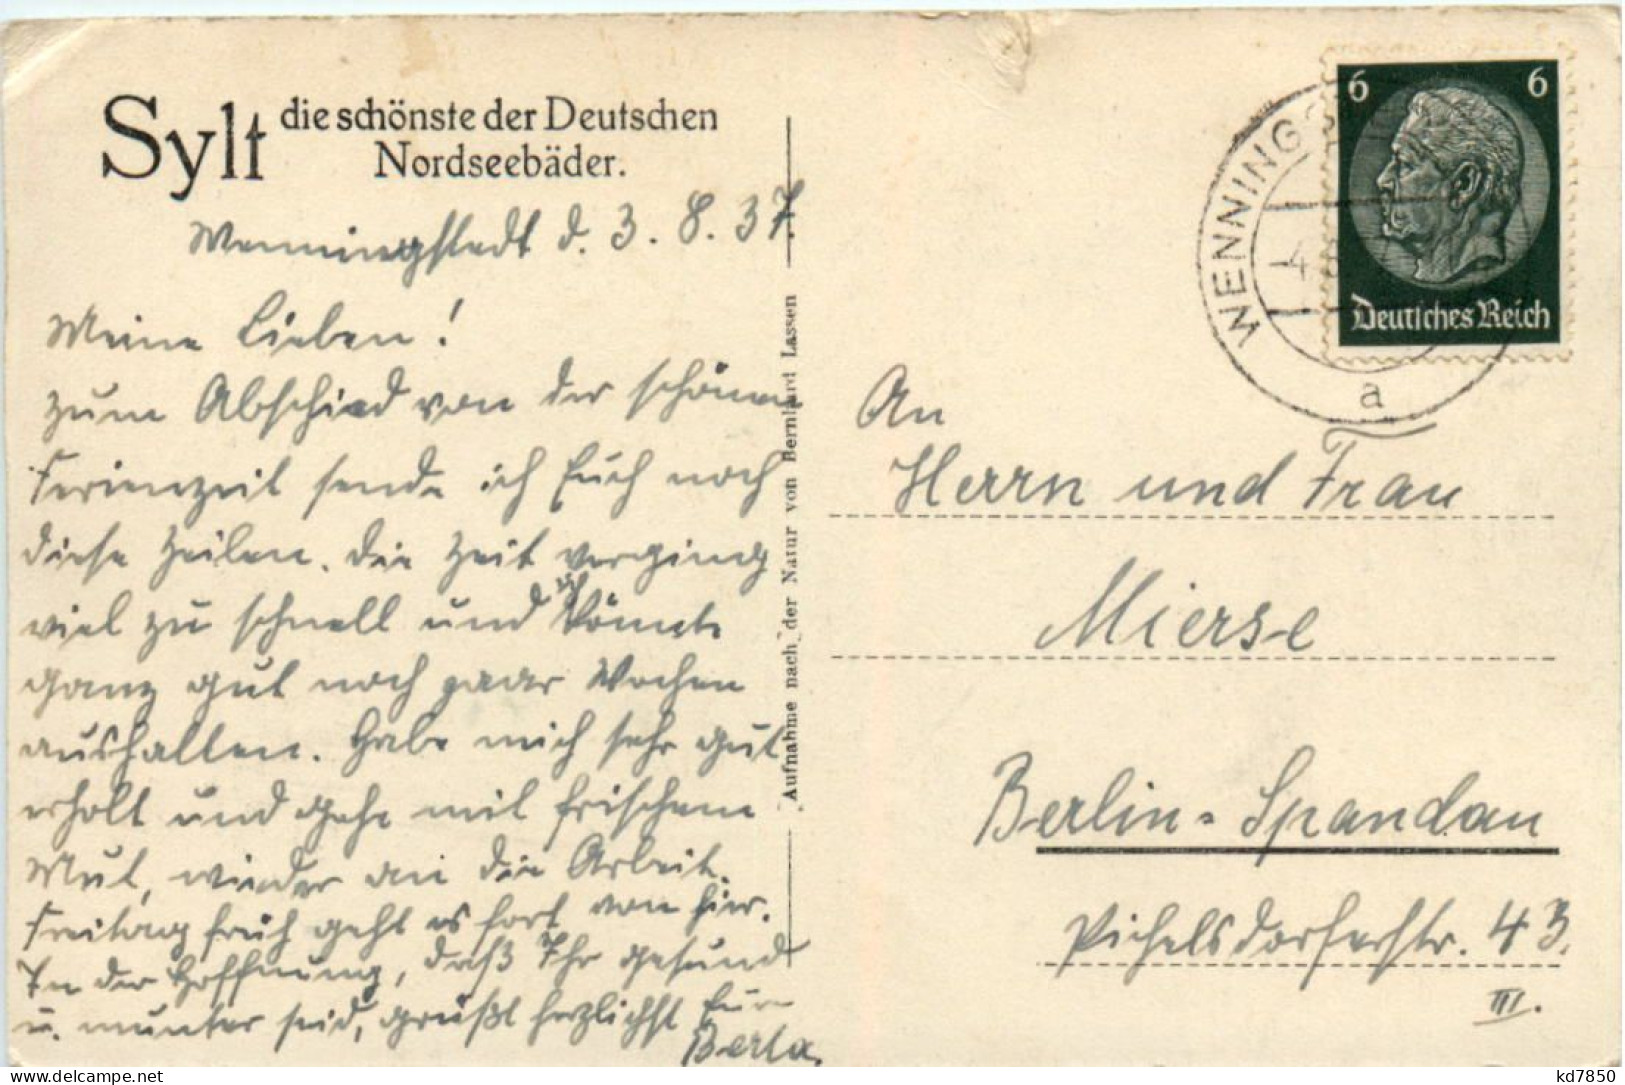 Sylt die schönste der Deutschen
Nordseebäder.
Wenningstedt d. 3. 8. 37.
Meine Lieben!
Zum Abschied von der schönen
Ferienzeit sende ich Euch noch
diese Zeilen. Die Zeit verging
viel zu schnell und ich könnte
ganz gut noch paar Wochen
aushalten. Habe mich sehr gut
erholt und gehe mit frischem
Mut, wieder an die Arbeit.
Freitag früh geht es fort von hier.
In der Hoffnung, daß Ihr gesund
u. munter seid, grüßt herzlichst Eure
Berta.
Aufnahme nach der Natur von Bernhard Lassen
6 6
Deutsches Reich
WENNINGS
-4.
a
An
Herrn und Frau
Mierse
Berlin-Spandau
Pichelsdorferstr. 43.
III.
kd7850